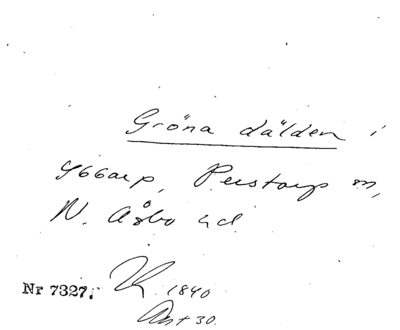 Gröna dälden i
Ybbarp, Perstorp sn,
N. Åsbo hd
Nr 7327. 1840
Ant 30.